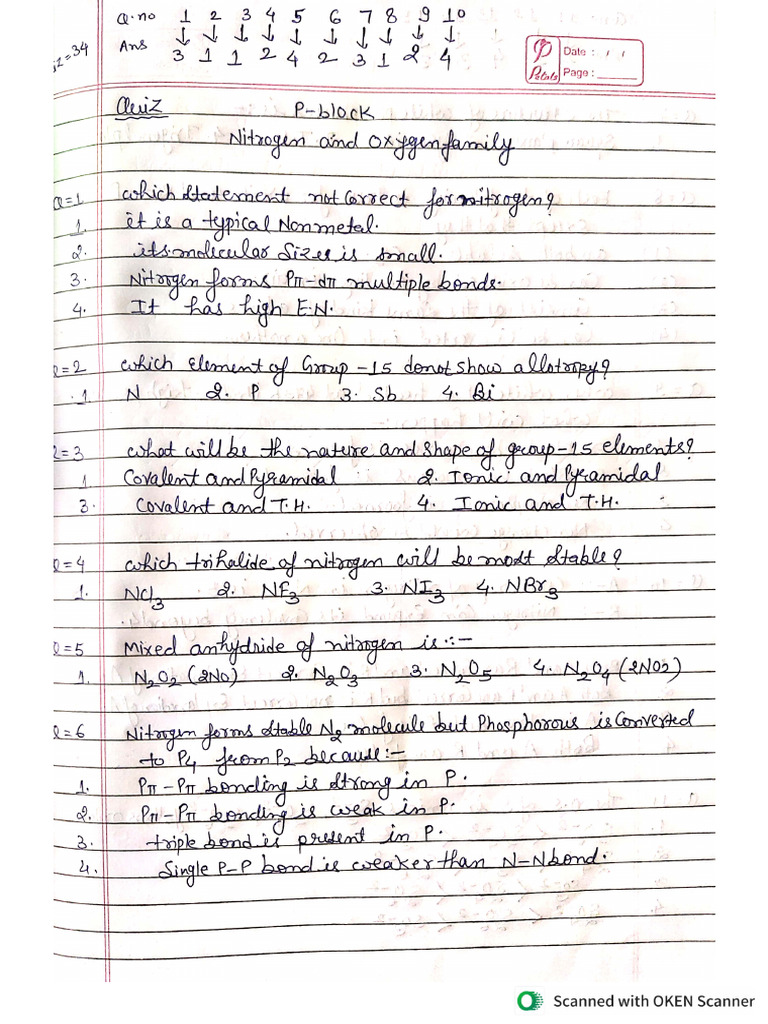 Q.no 1 2 3 4 5 6 7 8 9 10
↓ ↓ ↓ ↓ ↓ ↓ ↓ ↓ ↓ ↓
Ans 3 1 1 2 4 2 3 1 2 4
=34
Date :
Petals Page :
Quiz P-block
Nitrogen and Oxygen family
Q=1 which statement not correct for nitrogen?
1. it is a typical Nonmetal.
2. its molecular Sizes is small.
3. Nitrogen forms Pπ-dπ multiple bonds.
4. It has high E.N.
Q=2 which element of Group-15 donot show allotropy?
1 N 2. P 3. Sb 4. Bi
Q=3 what will be the nature and shape of group-15 elements?
1 Covalent and Pyramidal 2. Ionic and Pyramidal
3. Covalent and T.H. 4. Ionic and T.H.
Q=4 which trihalide of nitrogen will be most stable?
1. NCl₃ 2. NF₃ 3. NI₃ 4. NBr₃
Q=5 Mixed anhydride of nitrogen is :-
1. N₂O₂ (2NO) 2. N₂O₃ 3. N₂O₅ 4. N₂O₄ (2NO₂)
Q=6 Nitrogen forms stable N₂ molecule but Phosphorous is Converted
to P₄ from P₂ because:-
1. Pπ-Pπ bonding is strong in P.
2. Pπ-Pπ bonding is weak in P.
3. triple bond is present in P.
4. Single P-P bond is weaker than N-N bond.
Scanned with OKEN Scanner